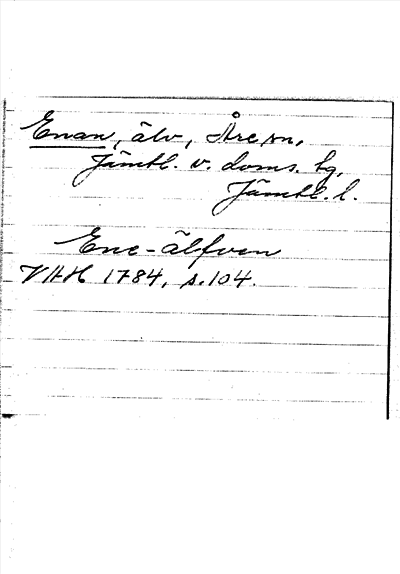 Enan, älv, Åre sn,
Jämtl. v. doms. hg,
Jämtl. l.
Ene-älfven
VAH 1784, s. 104.